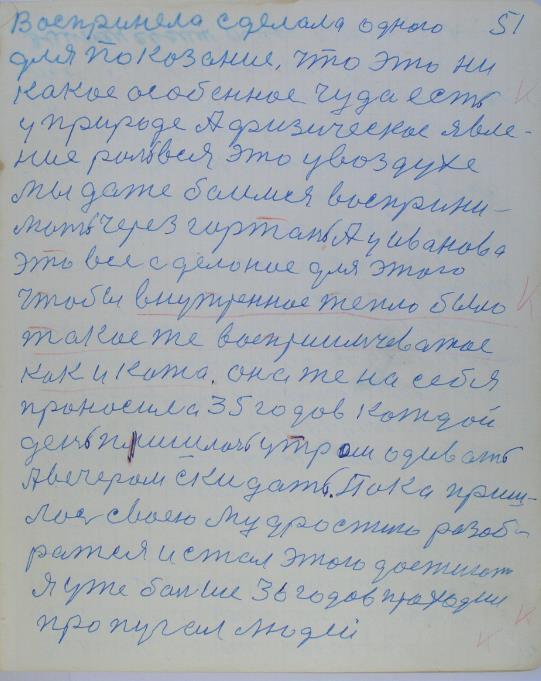 Воспринела сделала одного 51
для Показание, что это ни
какое особенное чуда есть
у природе А физическое явле-
ние рольвся это у воздухе
мы даже боимся восприни-
мать через гортань А у иванова
это все сделоное для этого
чтобы внутренное тепло было
такое же восприимчеватое
как и кожа. она же на себя
проносила 35 годов каждой
день пришилось утром одивать
А вечером скидать. Пока приш-
лос своею мудростию розоб-
ратся и стал этого достигат
я уже больше 36 годов проходил
пропугал людей